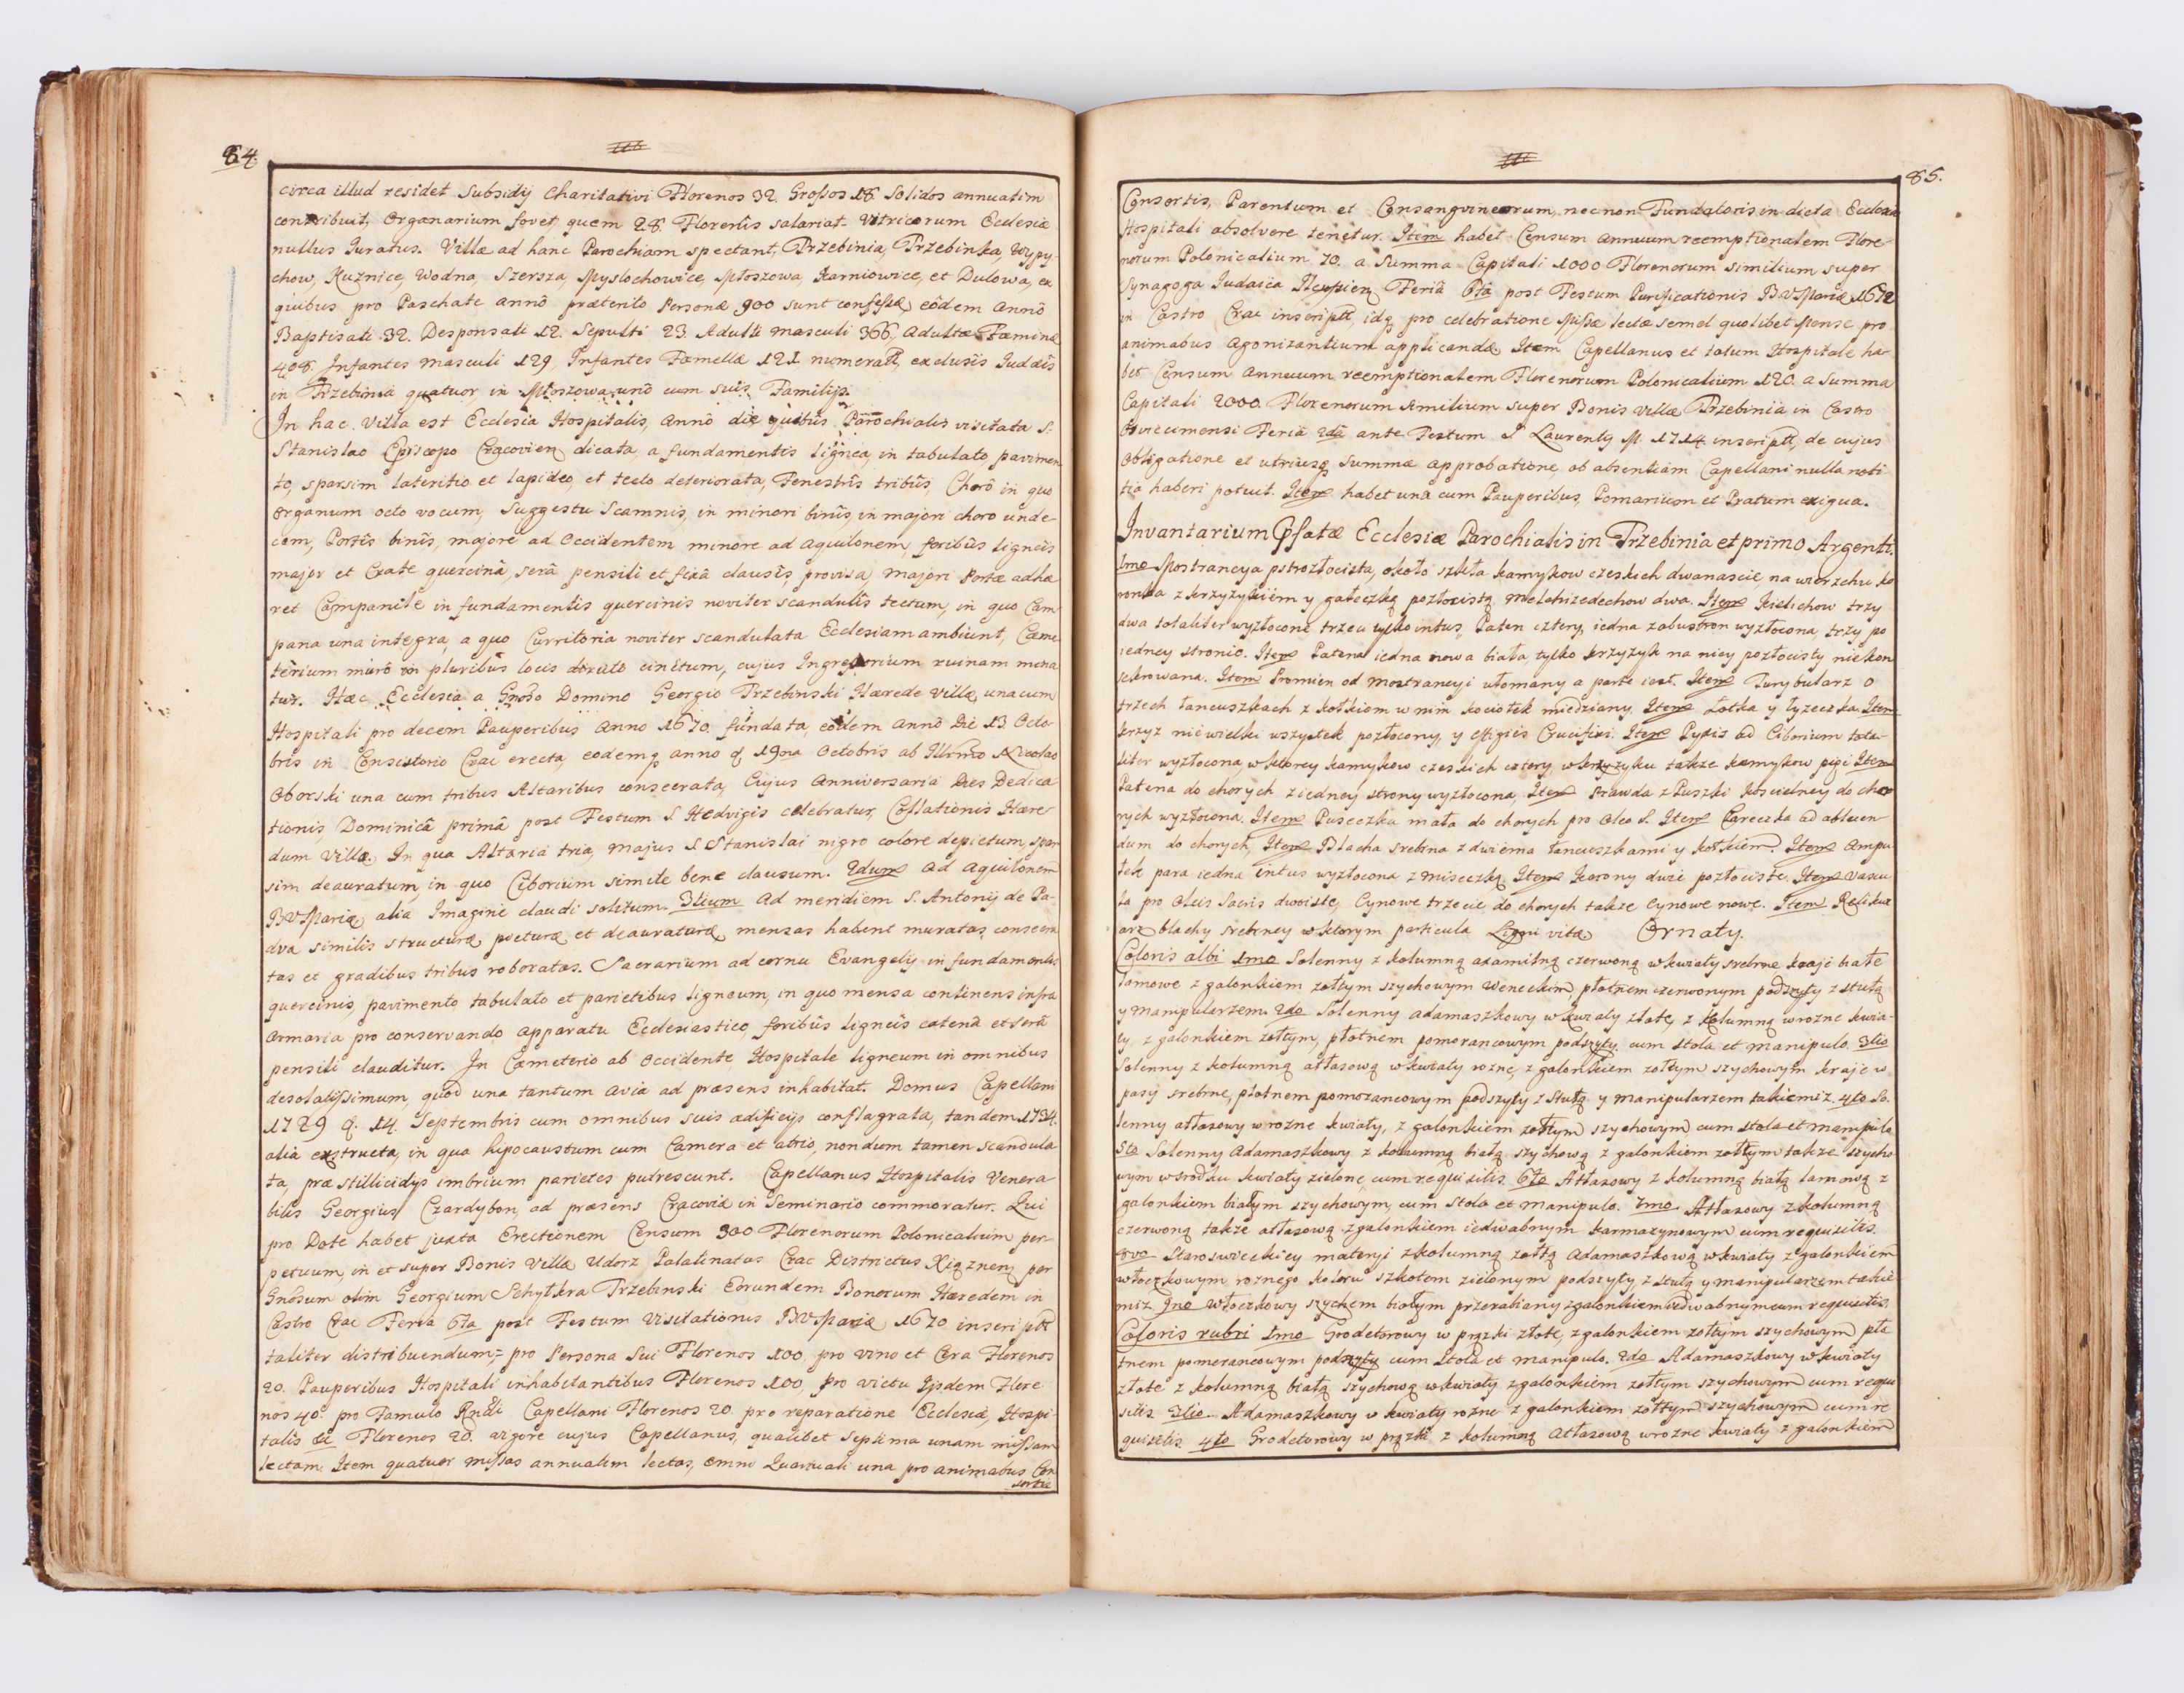 84.
circa illud residet Subsidij Charitativi Florenos 32. Grossos 18. Solidos annuatim
contribuit, Organarium fovet, quem 28. Florenis salariat. Vitricorum Ecclesiæ
nullus Juratus. Villæ ad hanc Parochiam spectant, Trzebinia, Trzebinka, Wypy
chow, Kuznice, Wodna, Szersza, Myslochowice, Młoszowa, Karniowice, et Dulowa, ex
quibus pro Paschate annô præterito Personæ 900 sunt confessæ, eôdem Annô
Baptisati 32. Desponsati 12. Sepulti 23. Adulti masculi 366, Adultæ Fæminæ
408. Infantes masculi 129, Infantes Fæmellæ 121 numerati, exclusis Judæis
in Trzebinia quatuor in Młoszowa unô cum suis Familijs.
In hac Villa est Ecclesia Hospitalis, Annô die quibûs Parochialis visitata S.
Stanislao Episcopo Cracovien dicata, a fundamentis lignea, in tabulato pavimen
to, sparsim lateritio et lapideo, et tecto deteriorata, Fenestrîs tribûs, Chorô in quo
Organum octo vocum, Suggestu Scamnis, in minori binîs, in majori choro unde-
cem, Portîs binîs, majore ad Occidentem minore ad Aquilonem, foribûs ligneis
major et Crate quercinâ, serâ pensili et fixâ clausîs provisa, majori Portæ adhæ
ret Campanile in fundamentis quercinis noviter scandulîs tectum, in quo Cam
pana una integra, a quo Curritoria noviter scandulata Ecclesiam ambiunt, Cæme
terium murô in pluribus locis diruto cinctum, cujus Ingressorium ruinam mina
tur. Hæc Ecclesia a Gnoso Domino Georgio Trzebinski Hærede Villæ, unacum
Hospitali pro decem Pauperibus Anno 1670. fundata, eôdem annô die 13 Octo
bris in Consistorio Crac erecta, eodemq anno d 19na Octobris ab Illrmo Nicolao
Oborski una cum tribus Altaribus consecrata, Cujus Anniversaria Dies Dedica
tionis, Dominicâ primâ post Festum S. Hedvigis celebratur, Collationis Hære
dum Villæ. In qua Altaria tria, majus S. Stanislai nigro colore depictum, spar
sim deauratum, in quo Ciborium simile bene clausum. 2dum ad Aquilonem
BVMariæ, alia Imagine claudi solitum. 3tium Ad meridiem S. Antonij de Pa-
dva similis structuræ, picturæ et deauraturæ, mensas habent muratas, consecra
tas et gradibus tribus roboratas. Sacrarium ad cornu Evangelij in fundamentis
quercinis, pavimento tabulato et parietibus ligneum, in quo mensa continens infra
Armaria pro conservando apparatu Ecclesiastico, foribûs ligneîs catenâ et serâ
pensili clauditur. In Cæmeterio ab Occidente Hospitale ligneum in omnibus
desolatissimum, quod una tantum avia ad præsens inhabitat. Domus Capellani
1729 d. 14. Septembris cum omnibus suis ædificijs conflagrata, tandem 1734.
alia exstructa, in qua hipocaustum cum Camera et atrio, nondum tamen scandula
ta, præ stillicidys imbrium parietes putrescunt. Capellanus Hospitalis Venera
bilis Georgius Czardybon, ad præsens Cracoviæ in Seminario commoratur. Qui
pro Dote habet juxta Erectionem Censum 300 Florenorum Polonicalium per-
petuum, in et super Bonis Villæ Udorz Palatinatus Crac Districtus Xiąznen, per
Gnosum olim Georgium Schytkra Trzebinski Eorundem Bonorum Hæredem in
Castro Crac Feria 6ta post Festum Visitationis BVMariæ 1670 inscriptt
taliter distribuendum = pro Persona Sui Florenos 100, pro vino et Cera Florenos
20. Pauperibus Hospitali inhabitantibus Florenos 100, pro victu Ijsdem Flore
nos 40. pro Famulo Rndi Capellani Florenos 20. pro reparatione Ecclesiæ, Hospi-
talis &c Florenos 20. vigore cujus Capellanus, qualibet Septima unam missam
lectam. Item quatuor missas annuatim lectas, omni Quartuali una pro animabus Con
sortis
85.
Consortis, Parentum et Consangvineorum, nec non Fundatoris, in dicta Ecclesia
Hospitali absolvere tenetur. Item habet Censum annuum reemptionalem Flore-
norum Polonicalium 70. a Summa Capitali 1000 Florenorum similium super
Synagoga Judaica Feriâ 6tâ post Festum Purificationis BVMariæ 1672
in Castro Crac inscriptt, idq pro celebratione Missæ lectæ semel quolibet Mense pro
animabus Agonizantium applicandæ. Item Capellanus et totum Hospitale ha-
bet Censum Annuum reemptionalem Florenorum Polonicalium 120. a Summa
Capitali 2000. Florenorum similium super Bonis Villæ Trzebinia in Castro
Osviecimensi Feriâ 2dâ ante Festum S. Laurentij M. 1714. inscriptt, de cujus
Obligatione et utriusq Summæ approbatione, ob absentiam Capellani nulla noti
tia haberi potuit. Item habet una cum Pauperibus, Pomarium et Pratum exigua.
Invantarium Pfatæ Ecclesiæ Parochialis in Trzebinia et primo Argenti.
1mo Mostrancya pstrozłocista, około szkła kamykow czeskich dwanascie na wierzchu ko
ronka z krzyzykiem y gałeczką pozłocistą, Melchizedechow dwa. Item Kielichow trzy
dwa totaliter wyzłocone trzeci tylko intus, Paten cztery, iedna zobustron wyzłocona, trzy po
iedney stronie. Item Patena iedna nowa biała, tylko krzyzyk na niey pozłocisty niekon
sekrowana. Item Promien od Mostrancyi ułomany a parte iest. Item Turybularz o
trzech łancuszkach z kołkiem w nim kociołek miedziany. Item Łotka y łyzeczka. Item
Krzyz niewielki wszystek pozłocony, y effigies Crucifixi. Item Pyxis ad Ciborium tota-
liter wyzłocona, w ktorey kamykow czeskich cztery, w krzyzyku takze kamykow pięi Item
Patena do chorych z iedney strony wyzłocona, Item Prawda z Puszki Koscielney do cho
rych wyzłocona. Item Puseczka mała do chorych pro Oleo S. Item Czreczka ad abluen-
dum do chorych, Item Blacha srebrna z dwiema łancuszkami y kołkiem. Item Ampu
łek para iedna intus wyzłocona z miseczką. Item Korony dwie pozłociste. Item Vascu
la pro Oleis Sacris dwoiste, Cynowe trzecie, do chorych takze Cynowe nowe. Item Relikwi
arz blachy srebrney w ktorym particula Ligni vitæ. Ornaty.
Coloris albi 1mo Solenny z kolumną axamitną czerwoną w kwiaty srebrne kraje białe
lamowe z galonkiem zołtym szychowym Weneckim, płotnem czerwonym podszyty z stułą
y manipularzem. 2do Solenny adamaszkowy w kwiaty złote, z kolumną w rozne kwia-
ty, z galonkiem zołtym, płotnem pomorancowym podszyty cum stola et manipulo. 3tio
Solenny z kolumną atłasową w kwiaty rozne, z galonkiem zołtym szychowym kraje w
pasy srebrne, płotnem pomorancowym podszyty z Stułą y manipularzem takiemiz. 4to So.
lenny atłasowy w rozne kwiaty, z galonkiem zołtym szychowym cum stola et manipulo
5to Solenny Adamaszkowy z kolumną białą szychową z galonkiem zołtym takze szycho
wym w srodku kwiaty zielone, cum requisitis. 6to Atłasowy z kolumną białą lamową z
galonkiem białym szychowym, cum Stola et manipulo. 7mo Atłasowy z kolumną
czerwoną takze atłasową z galonkiem iedwabnym karmazynowym cum requisitis.
8vo Staroswieckiey materyi z kolumną zołtą Adamaszkową w kwiaty z galonkiem
włoczkowym roznego koloru szkotem zielonym podszyty, z stułą y manipularzem takie
miz 9no Włoczkowy szychem białym przerabiany z galonkiem iedwabnym cum requisitis.
Coloris rubri 1mo Grodetorowy w prązki złote, z galonkiem zołtym szychowym pło
tnem pomerancowym podszyty cum Stola et manipulo. 2do Adamaszkowy w kwiaty
złote z kolumną białą szychową w kwiaty z galonkiem zołtym szychowym cum requi
sitis. 3tio Adamaszkowy w kwiaty rozne z galonkiem zołtym szychowym cum re
quisitis. 4to Grodetorowy w prązki z kolumną atłasową w rozne kwiaty z galonkiem